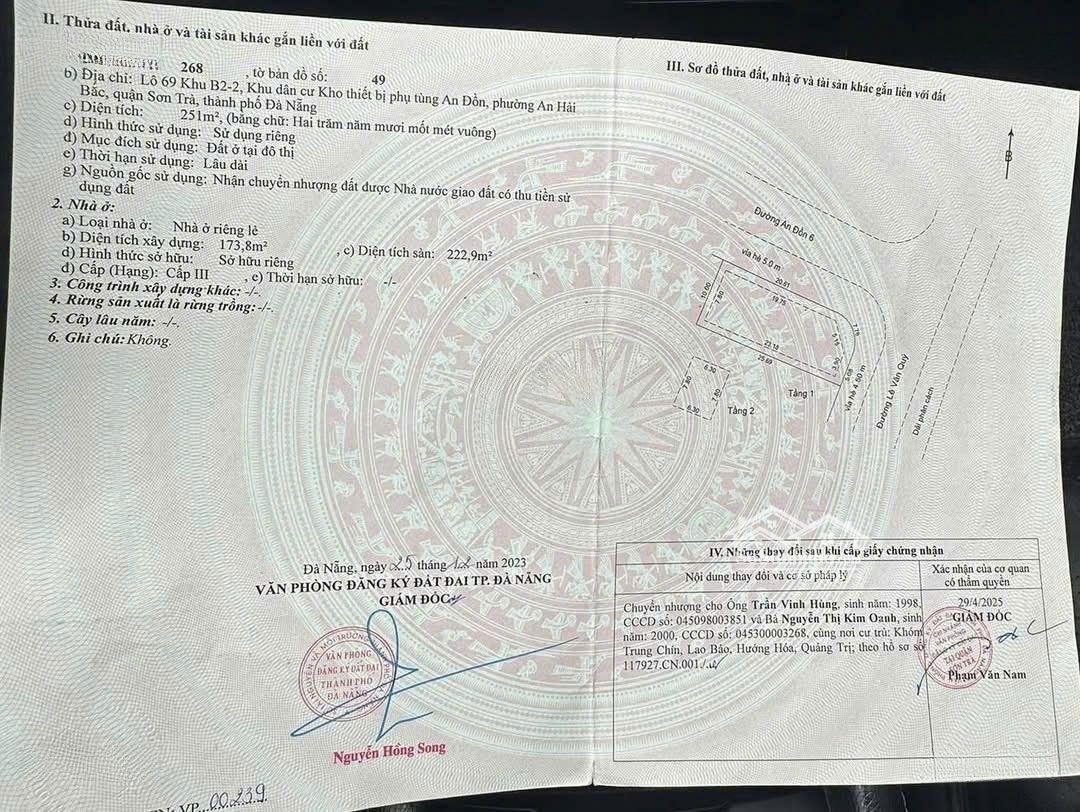 II. Thửa đất, nhà ở và tài sản khác gắn liền với đất
268 , tờ bản đồ số: 49
b) Địa chỉ: Lô 69 Khu B2-2, Khu dân cư Kho thiết bị phụ tùng An Đồn, phường An Hải
Bắc, quận Sơn Trà, thành phố Đà Nẵng
c) Diện tích: 251m², (bằng chữ: Hai trăm năm mươi mốt mét vuông)
d) Hình thức sử dụng: Sử dụng riêng
đ) Mục đích sử dụng: Đất ở tại đô thị
e) Thời hạn sử dụng: Lâu dài
g) Nguồn gốc sử dụng: Nhận chuyển nhượng đất được Nhà nước giao đất có thu tiền sử
dụng đất
2. Nhà ở:
a) Loại nhà ở: Nhà ở riêng lẻ
b) Diện tích xây dựng: 173,8m² , c) Diện tích sàn: 222,9m²
d) Hình thức sở hữu: Sở hữu riêng
đ) Cấp (Hạng): Cấp III , e) Thời hạn sở hữu: -/-
3. Công trình xây dựng khác: -/-.
4. Rừng sản xuất là rừng trồng: -/-.
5. Cây lâu năm: -/-.
6. Ghi chú: Không.
Đà Nẵng, ngày 25 tháng 12 năm 2023
VĂN PHÒNG ĐĂNG KÝ ĐẤT ĐAI TP. ĐÀ NẴNG
GIÁM ĐỐC
VĂN PHÒNG
ĐĂNG KÝ ĐẤT ĐAI
THÀNH PHỐ
ĐÀ NẴNG
Nguyễn Hồng Song
VP 00239
III. Sơ đồ thửa đất, nhà ở và tài sản khác gắn liền với đất
B
Đường An Đồn 6
vỉa hè 5.0 m
20.61
19.75
10.00
7.80
7.76
4.15
3.50
5.08
23.18
25.69
vỉa hè 4.50 m
Tầng 1
Đường Lê Văn Quý
Dải phân cách
6.30
7.80
7.80
6.30
Tầng 2
IV. Những thay đổi sau khi cấp giấy chứng nhận
Nội dung thay đổi và cơ sở pháp lý
Xác nhận của cơ quan
có thẩm quyền
Chuyển nhượng cho Ông Trần Vinh Hùng, sinh năm: 1998,
CCCD số: 045098003851 và Bà Nguyễn Thị Kim Oanh, sinh
năm: 2000, CCCD số: 045300003268, cùng nơi cư trú: Khóm
Trung Chín, Lao Bảo, Hướng Hóa, Quảng Trị; theo hồ sơ số
117927.CN.001./.
29/4/2025
GIÁM ĐỐC
CHI NHÁNH
VĂN PHÒNG
TẠI QUẬN
SƠN TRÀ
Phạm Văn Nam